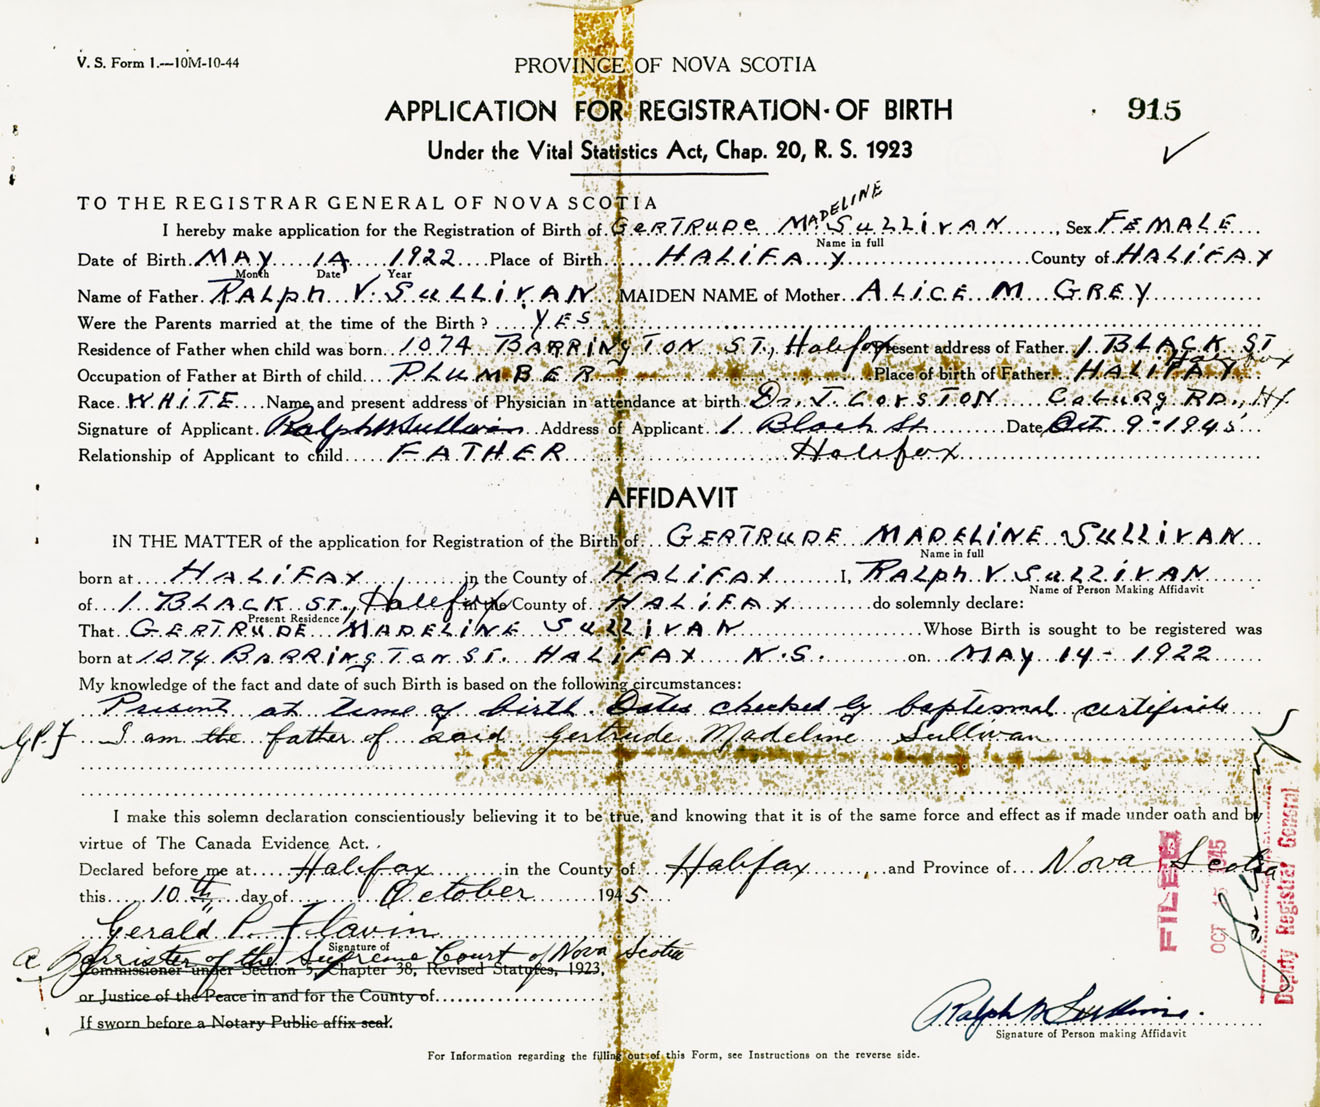 V. S. Form 1.—10M-10-44
PROVINCE OF NOVA SCOTIA
APPLICATION FOR REGISTRATION OF BIRTH
915
Under the Vital Statistics Act, Chap. 20, R. S. 1923
TO THE REGISTRAR GENERAL OF NOVA SCOTIA
MADELINE
I hereby make application for the Registration of Birth of GERTRUDE M SULLIVAN, Sex FEMALE
Name in full
Date of Birth MAY 14 1922 Place of Birth HALIFAX County of HALIFAX
Month Date Year
Name of Father RALPH V. SULLIVAN MAIDEN NAME of Mother ALICE M GREY
Were the Parents married at the time of the Birth? YES
Residence of Father when child was born 1074 BARRINGTON ST., Halifax Present address of Father 1 BLACK ST
Halifax
Occupation of Father at Birth of child PLUMBER Place of birth of Father HALIFAX
Race WHITE Name and present address of Physician in attendance at birth Dr. J CORSTON COBURG RD., Hx
Signature of Applicant Ralph V Sullivan Address of Applicant 1 Black St Date Oct 9-1945
Relationship of Applicant to child FATHER Halifax
AFFIDAVIT
IN THE MATTER of the application for Registration of the Birth of GERTRUDE MADELINE SULLIVAN
Name in full
born at HALIFAX in the County of HALIFAX I, RALPH V SULLIVAN
Name of Person Making Affidavit
of 1 BLACK ST., Halifax in the County of HALIFAX do solemnly declare:
Present Residence
That GERTRUDE MADELINE SULLIVAN Whose Birth is sought to be registered was
born at 1074 BARRINGTON ST. HALIFAX N.S. on MAY 14- 1922
My knowledge of the fact and date of such Birth is based on the following circumstances:
Present at time of birth Dates checked by baptismal certificate
G.P.F I am the father of said Gertrude Madeline Sullivan
I make this solemn declaration conscientiously believing it to be true, and knowing that it is of the same force and effect as if made under oath and by
virtue of The Canada Evidence Act.
Declared before me at Halifax in the County of Halifax, and Province of Nova Scotia
this 10th day of October 1945
Gerald P. Flavin
Signature of
a Barrister of the Supreme Court of Nova Scotia
Commissioner under Section 5, Chapter 38, Revised Statutes, 1923,
or Justice of the Peace in and for the County of
If sworn before a Notary Public affix seal.
FILED
OCT 1945
Deputy Registrar General
Ralph V Sullivan
Signature of Person making Affidavit
For Information regarding the filling out of this Form, see Instructions on the reverse side.